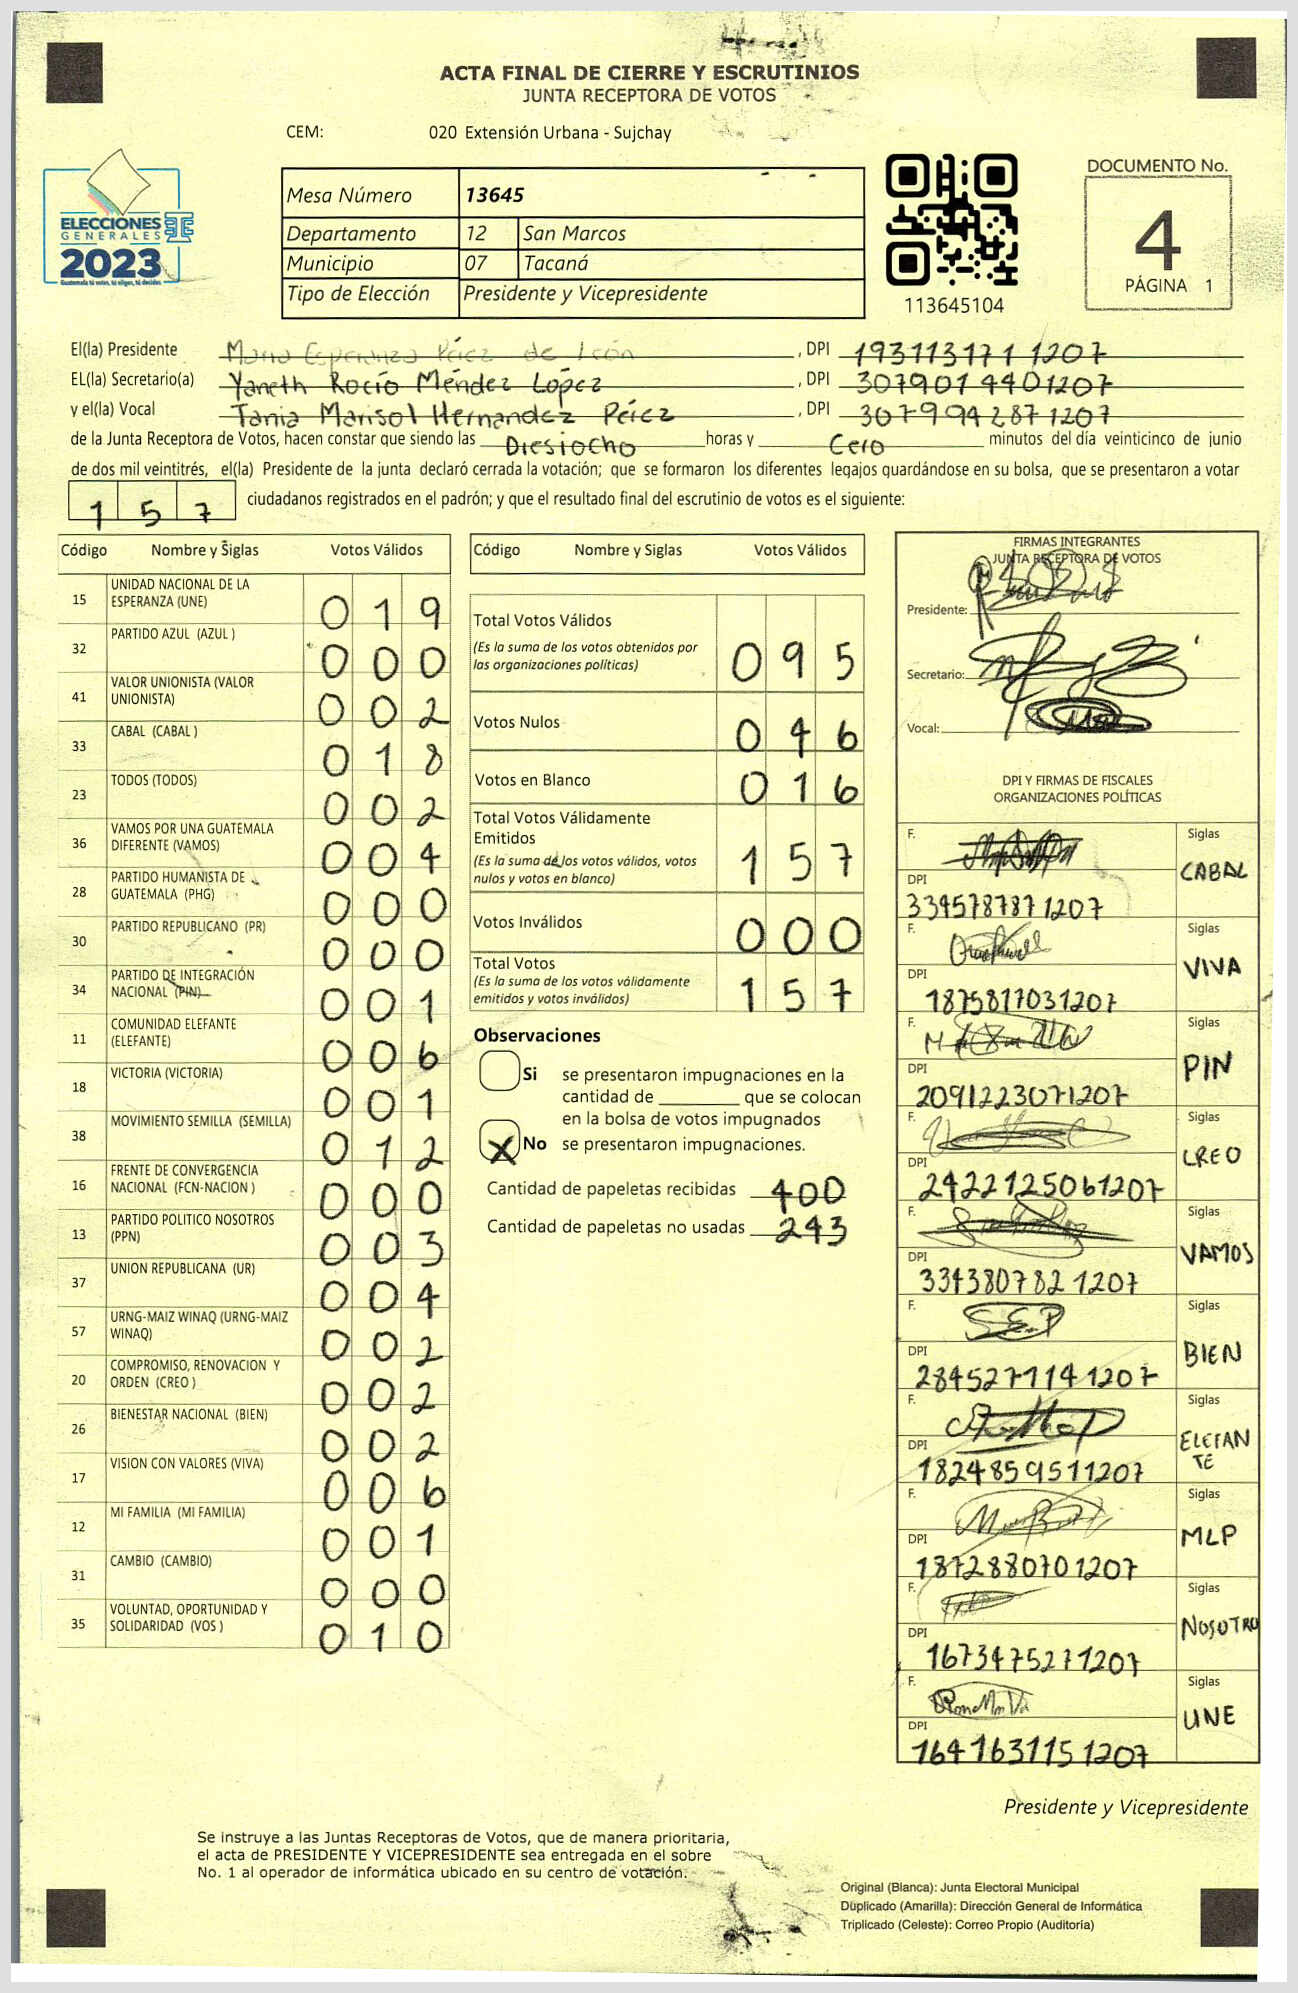 ACTA FINAL DE CIERRE Y ESCRUTINIOS
JUNTA RECEPTORA DE VOTOS
CEM: 020 Extensión Urbana - Sujchay
ELECCIONES
GENERALES
2023
Guatemala tú votas, tú eliges, tú decides
Mesa Número 13645
Departamento 12 San Marcos
Municipio 07 Tacaná
Tipo de Elección Presidente y Vicepresidente
113645104
DOCUMENTO No.
4
PÁGINA 1
El(la) Presidente Maria Esperanza Pérez de León, DPI 1931131711207
EL(la) Secretario(a) Yaneth Rocío Méndez López, DPI 3079014401207
y el(la) Vocal Tania Marisol Hernandez Pérez, DPI 3079942871207
de la Junta Receptora de Votos, hacen constar que siendo las Diesiocho horas y Cero minutos del día veinticinco de junio
de dos mil veintitrés, el(la) Presidente de la junta declaró cerrada la votación; que se formaron los diferentes legajos guardándose en su bolsa, que se presentaron a votar
157 ciudadanos registrados en el padrón; y que el resultado final del escrutinio de votos es el siguiente:
Código Nombre y Siglas Votos Válidos
15 UNIDAD NACIONAL DE LA ESPERANZA (UNE) 019
32 PARTIDO AZUL (AZUL ) 000
41 VALOR UNIONISTA (VALOR UNIONISTA) 002
33 CABAL (CABAL ) 018
23 TODOS (TODOS) 002
36 VAMOS POR UNA GUATEMALA DIFERENTE (VAMOS) 004
28 PARTIDO HUMANISTA DE GUATEMALA (PHG) 000
30 PARTIDO REPUBLICANO (PR) 000
34 PARTIDO DE INTEGRACIÓN NACIONAL (PIN) 001
11 COMUNIDAD ELEFANTE (ELEFANTE) 006
18 VICTORIA (VICTORIA) 001
38 MOVIMIENTO SEMILLA (SEMILLA) 012
16 FRENTE DE CONVERGENCIA NACIONAL (FCN-NACION ) 000
13 PARTIDO POLITICO NOSOTROS (PPN) 003
37 UNION REPUBLICANA (UR) 004
57 URNG-MAIZ WINAQ (URNG-MAIZ WINAQ) 002
20 COMPROMISO, RENOVACION Y ORDEN (CREO ) 002
26 BIENESTAR NACIONAL (BIEN) 002
17 VISION CON VALORES (VIVA) 006
12 MI FAMILIA (MI FAMILIA) 001
31 CAMBIO (CAMBIO) 000
35 VOLUNTAD, OPORTUNIDAD Y SOLIDARIDAD (VOS ) 010
Código Nombre y Siglas Votos Válidos
Total Votos Válidos 095
(Es la suma de los votos obtenidos por
las organizaciones políticas)
Votos Nulos 046
Votos en Blanco 016
Total Votos Válidamente
Emitidos 157
(Es la suma de los votos válidos, votos
nulos y votos en blanco)
Votos Inválidos 000
Total Votos 157
(Es la suma de los votos válidamente
emitidos y votos inválidos)
Observaciones
Si se presentaron impugnaciones en la
cantidad de ________ que se colocan
en la bolsa de votos impugnados
X No se presentaron impugnaciones.
Cantidad de papeletas recibidas 400
Cantidad de papeletas no usadas 243
FIRMAS INTEGRANTES
JUNTA RECEPTORA DE VOTOS
Presidente:
Secretario:
Vocal:
DPI Y FIRMAS DE FISCALES
ORGANIZACIONES POLÍTICAS
F. Siglas CABAL
DPI 3345787871207
F. Siglas VIVA
DPI 1875817031207
F. Siglas PIN
DPI 2091223071207
F. Siglas CREO
DPI 2422125061207
F. Siglas VAMOS
DPI 3343807821207
F. S.E.P Siglas BIEN
DPI 2845271141207
F. Siglas ELEFANTE
DPI 1824859511207
F. Siglas MLP
DPI 1872880701207
F. Siglas NOSOTRO
DPI 1673475271207
F. Siglas UNE
DPI 1641631151207
Presidente y Vicepresidente
Se instruye a las Juntas Receptoras de Votos, que de manera prioritaria,
el acta de PRESIDENTE Y VICEPRESIDENTE sea entregada en el sobre
No. 1 al operador de informática ubicado en su centro de votación.
Original (Blanca): Junta Electoral Municipal
Duplicado (Amarilla): Dirección General de Informática
Triplicado (Celeste): Correo Propio (Auditoría)